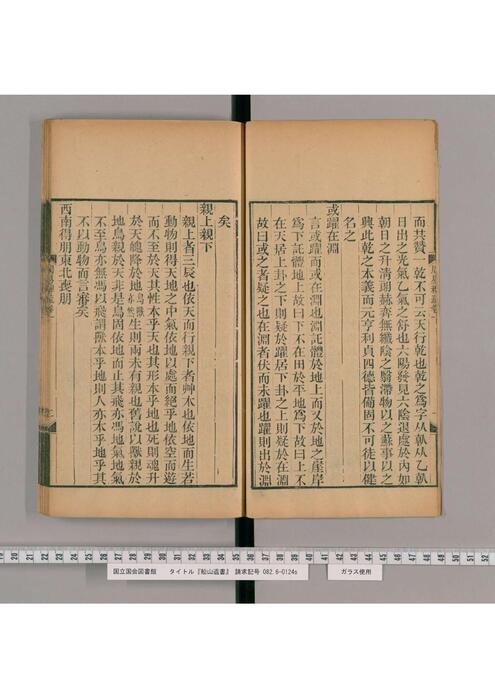 而其贊一乾不可云天行乾也乾之為字从倝从乙倝
日出之光氣乙氣之舒也六陽發見六陰退處於內如
朝日之升清朗赫弈無纖陰之翳滯物以之蘇事以之
興此乾之本義而元亨利貞四德皆備固不可徒以健
名之
或躍在淵
言或躍而或在淵也淵託體於地上而又於地之崖岸
為下託體地上故曰下不在田於平地為下故曰上不
在天居上卦之下則疑於躍居下卦之上則疑於在淵
故曰或之者疑之也在淵者伏而未躍也躍則出於淵
矣
親上親下
親上者三辰也依天而行親下者艸木也依地而生若
動物則得天地之中氣依地以處而絕乎地依空而遊
而不至於天其性本乎天也其形本乎地也死則魂升
於天魄降於地鳥獸亦然生則兩未有親也舊說以獸親於
地鳥親於天非是鳥固依地而止其飛亦馮地氣地氣
不至鳥亦無馮以飛謂獸本乎地則人亦本乎地乎其
不以動物而言審矣
西南得朋東北喪朋
国立国会図書館 タイトル『船山遺書』 請求記号 082.6-0124s
ガラス使用
19 20 21 22 23 24 25 26 27 28 29 30 31 32 33 34 35 36 37 38 39 40 41 42 43 44 45 46 47 48 49 50 51 52